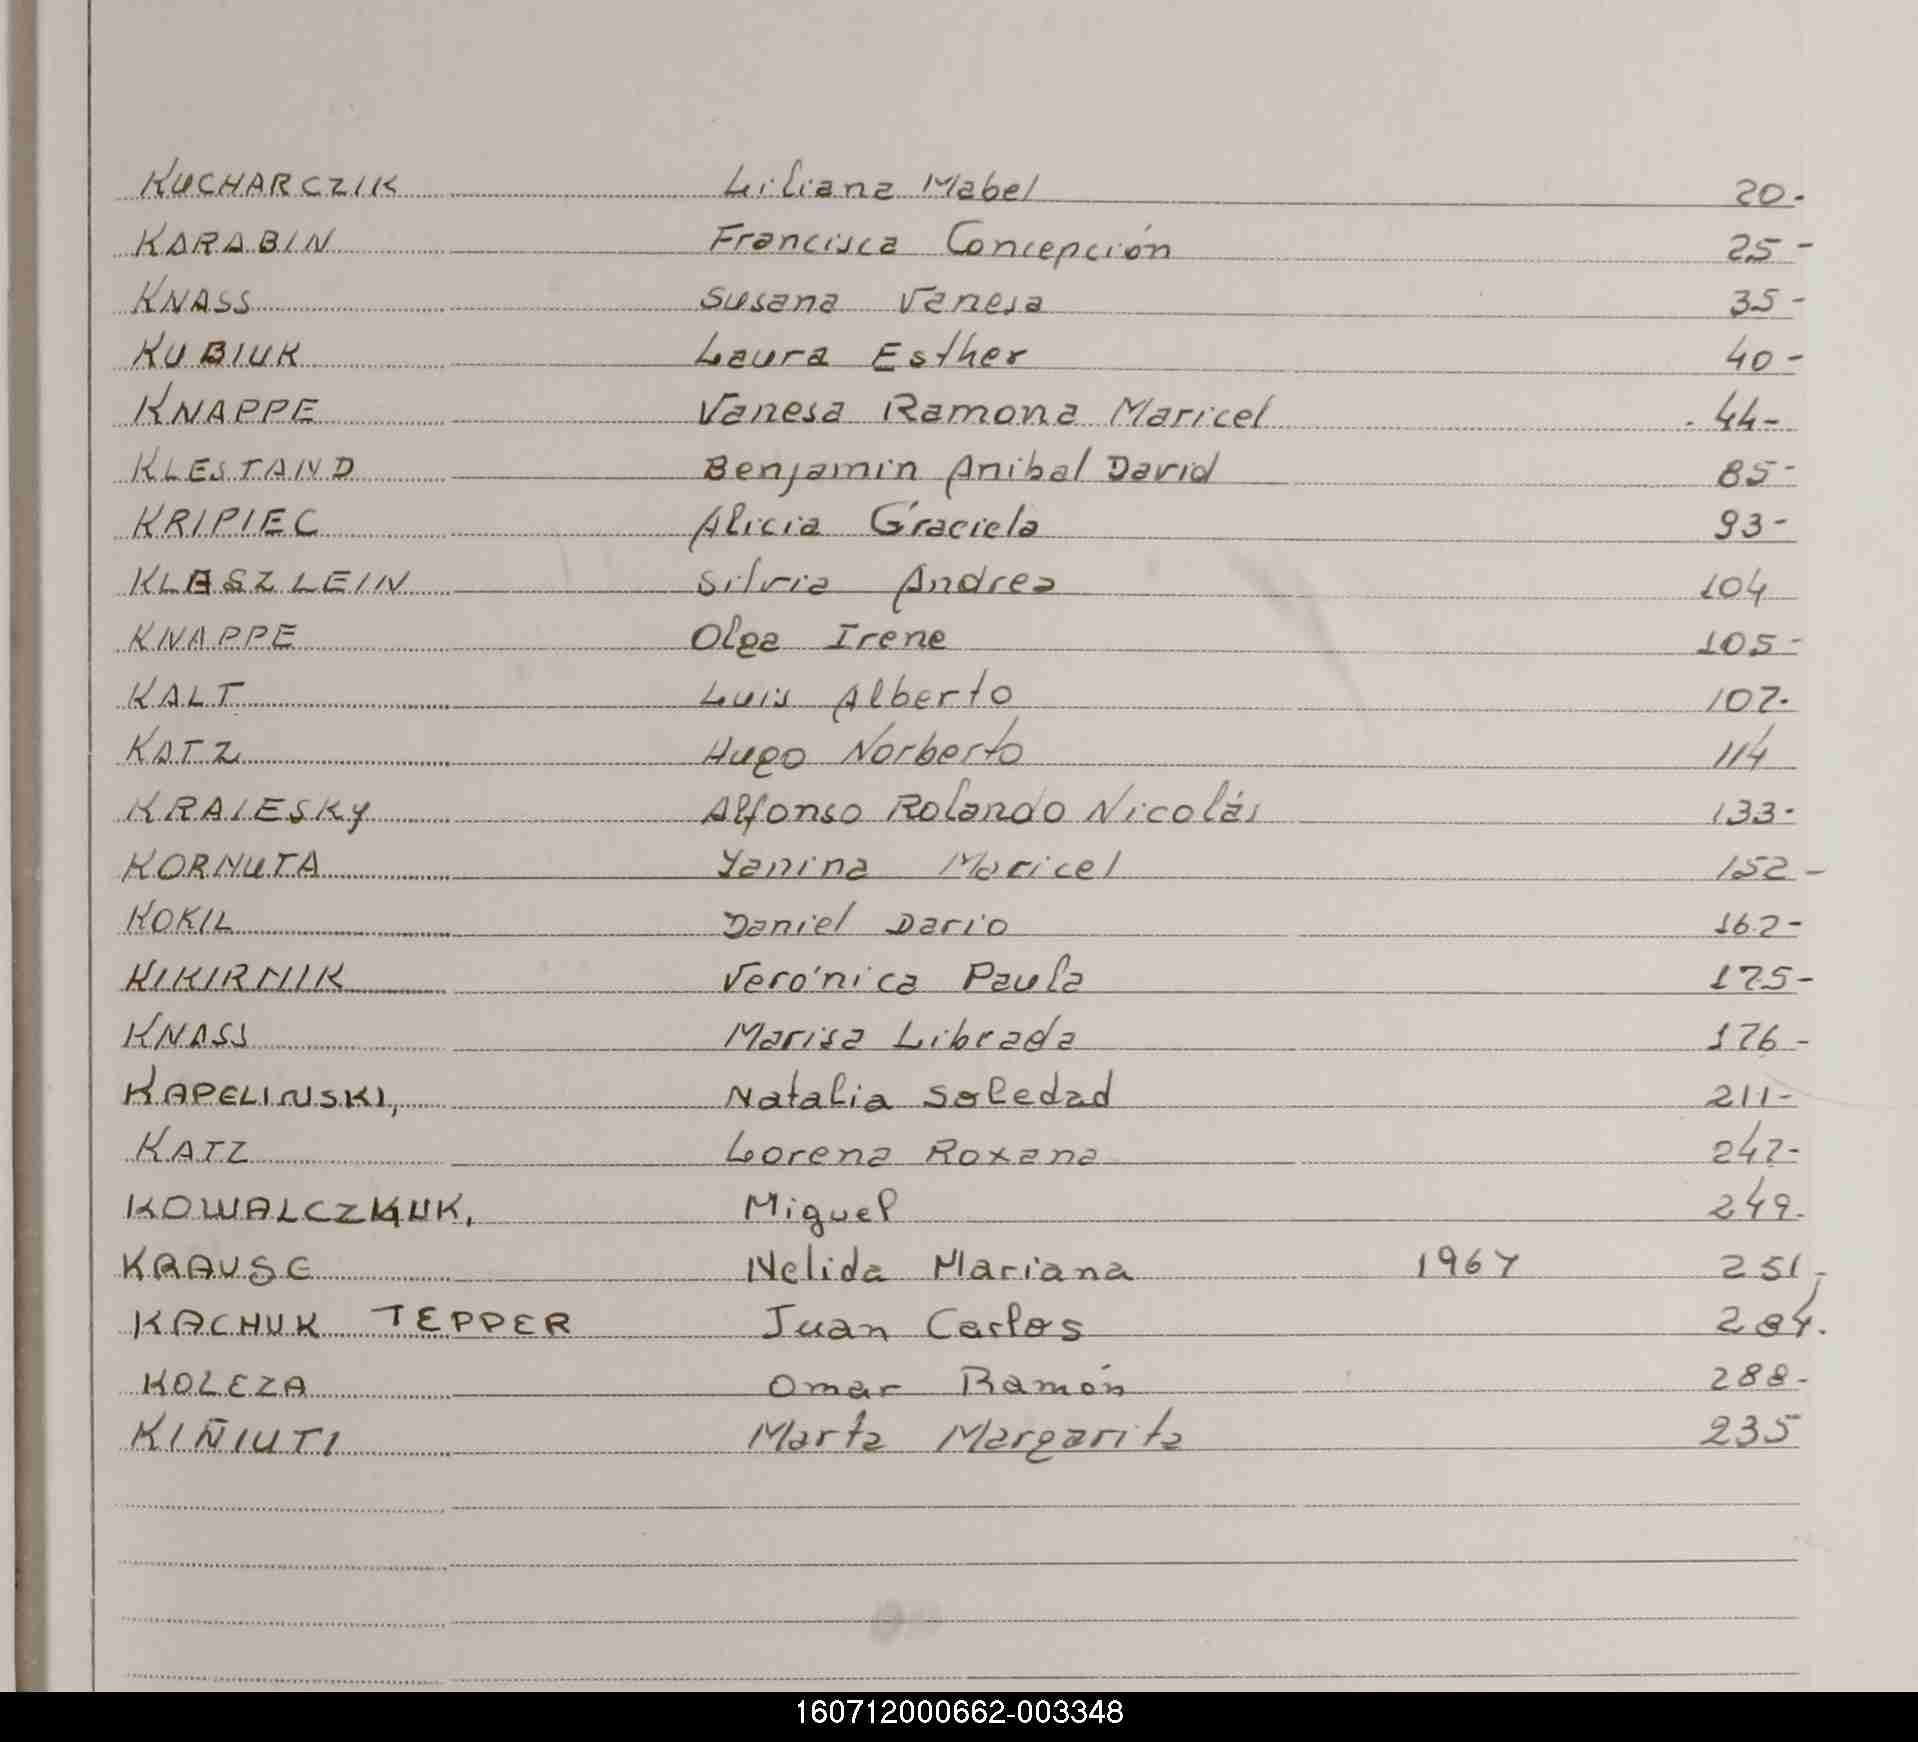 KUCHARCZIK Liliana Mabel 20-
KARABIN Francisca Concepción 25-
KNASS Susana Vanesa 35-
KUBIUK Laura Esther 40-
KNAPPE Vanesa Ramona Maricel 44-
KLESTAND Benjamin Anibal David 85-
KRIPIEC Alicia Graciela 93-
KLASZLEIN Silvia Andrea 104
KNAPPE Olga Irene 105-
KALT Luis Alberto 107-
KATZ Hugo Norberto 114
KRAIESKY Alfonso Rolando Nicolás 133-
KORNUTA Yanina Maricel 152-
KOKIL Daniel Dario 162-
KIKIRNIK Verónica Paula 175-
KNASS Marisa Librada 176-
KAPELINSKI, Natalia Soledad 211-
KATZ Lorena Roxana 247-
Miguel 249.
KRAUSE Nelida Mariana 1967 251-
KACHUK TEPPER Juan Carlos 284.
KOLEZA Omar Ramón 288-
KIÑIUTI Marta Margarita 235
160712000662-003348